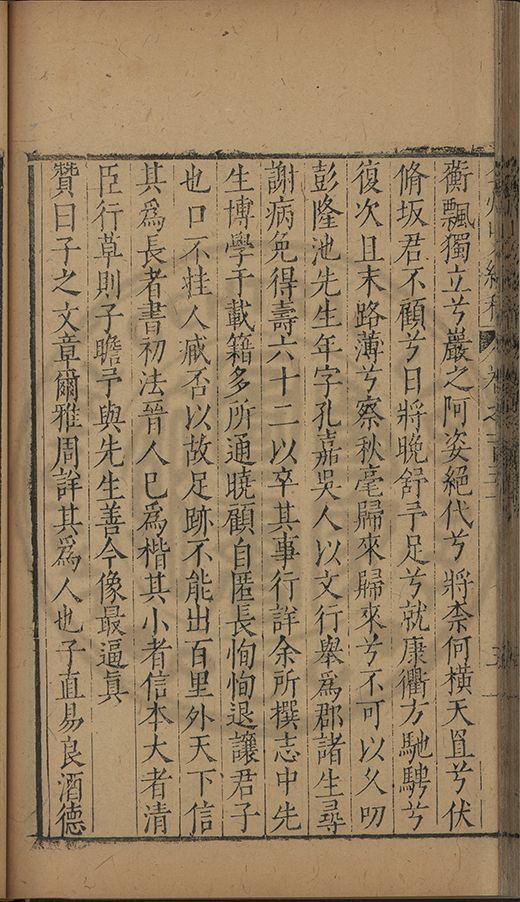 蘅飄獨立兮巖之阿姿絕代兮將柰何橫天罝兮伏
脩坂君不顧兮日將晚舒予足兮就康衢方馳騁兮
復次且末路薄兮察秋毫歸來歸來兮不可以久叨
彭隆池先生年字孔嘉吳人以文行舉爲郡諸生尋
謝病免得壽六十二以卒其事行詳余所撰志中先
生博學于載籍多所通曉顧自匿長恂恂退讓君子
也口不挂人臧否以故足跡不能出百里外天下信
其爲長者書初法晉人已爲楷其小者信本大者清
臣行草則子瞻予與先生善今像最逼眞
贊曰子之文章爾雅周詳其爲人也子直易良酒德